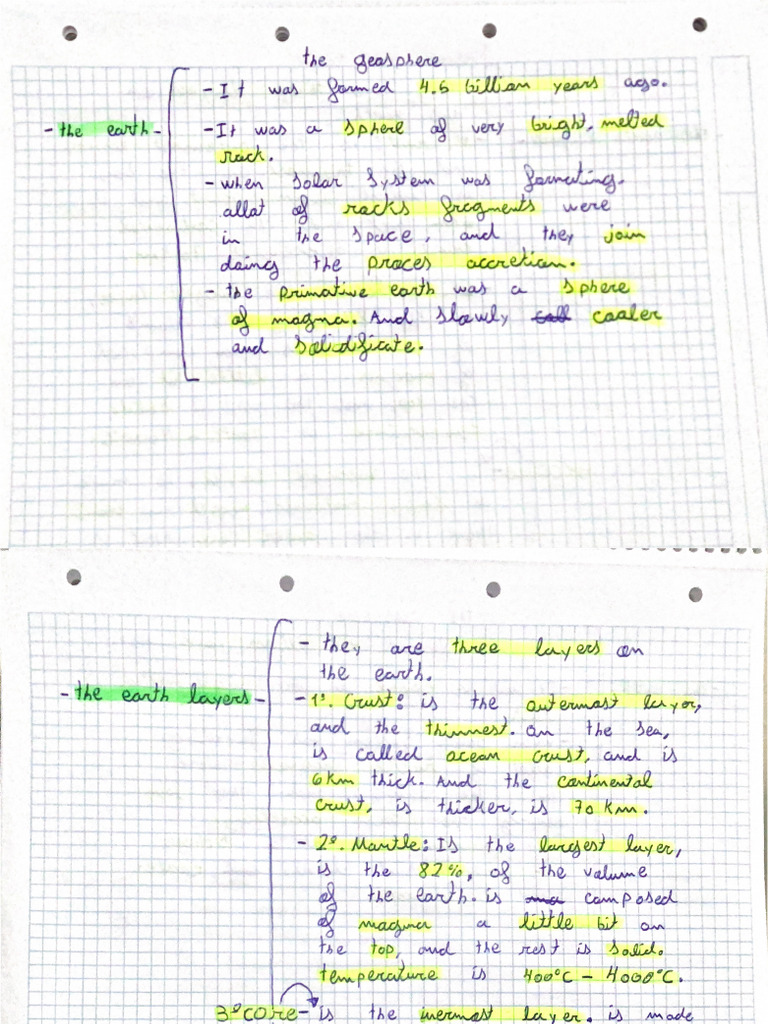 the geosphere
- It was formed 4.5 billion years ago.
- the earth -
- It was a sphere of very bright, melted
rock.
- when solar system was formating.
allot of rocks fragments were
in the space, and they join
doing the proces accretion.
- the primative earth was a sphere
of magma. And slowly cooler
and solidificate.
- they are three layers on
the earth.
- the earth layers -
- 1º. Crust: is the outermost layer,
and the thinnest. on the sea,
is called ocean crust, and is
6 km thick. And the continental
crust, is thicker, is 70 km.
- 2º. Mantle: Is the largest layer,
is the 82%, of the volume
of the earth. is composed
of magma a little bit on
the top, and the rest is solid.
temperature is 400ºC - 4000ºC.
3º CORE - is the inermost layer. is made